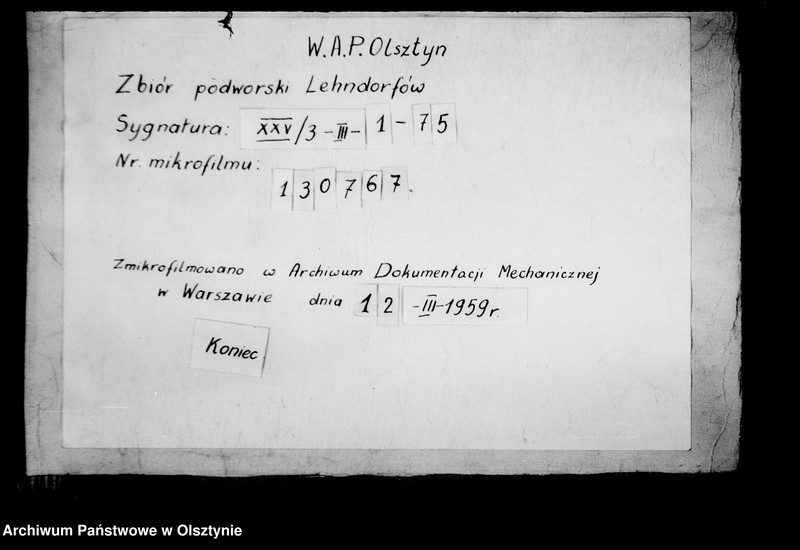 W.A.P. Olsztyn
Zbiór podworski Lehndorfów
Sygnatura: XXV/3-III-1-75
Nr. mikrofilmu:
130767.
Zmikrofilmowano w Archiwum Dokumentacji Mechanicznej
w Warszawie dnia 12-III-1959r.
Koniec
Archiwum Państwowe w Olsztynie